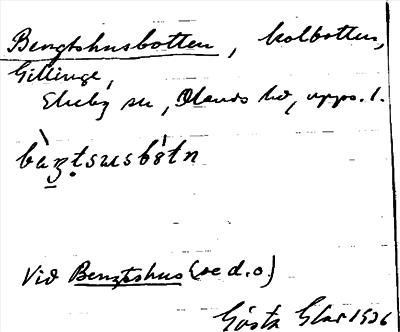 Bengtshusbotten, kolbotten,
Gillinge,
Ekeby sn, Olands hd, Upps. l.
bàṉṭsusbótn
Vid Bengtshus (se d.o.)
Gösta 1936